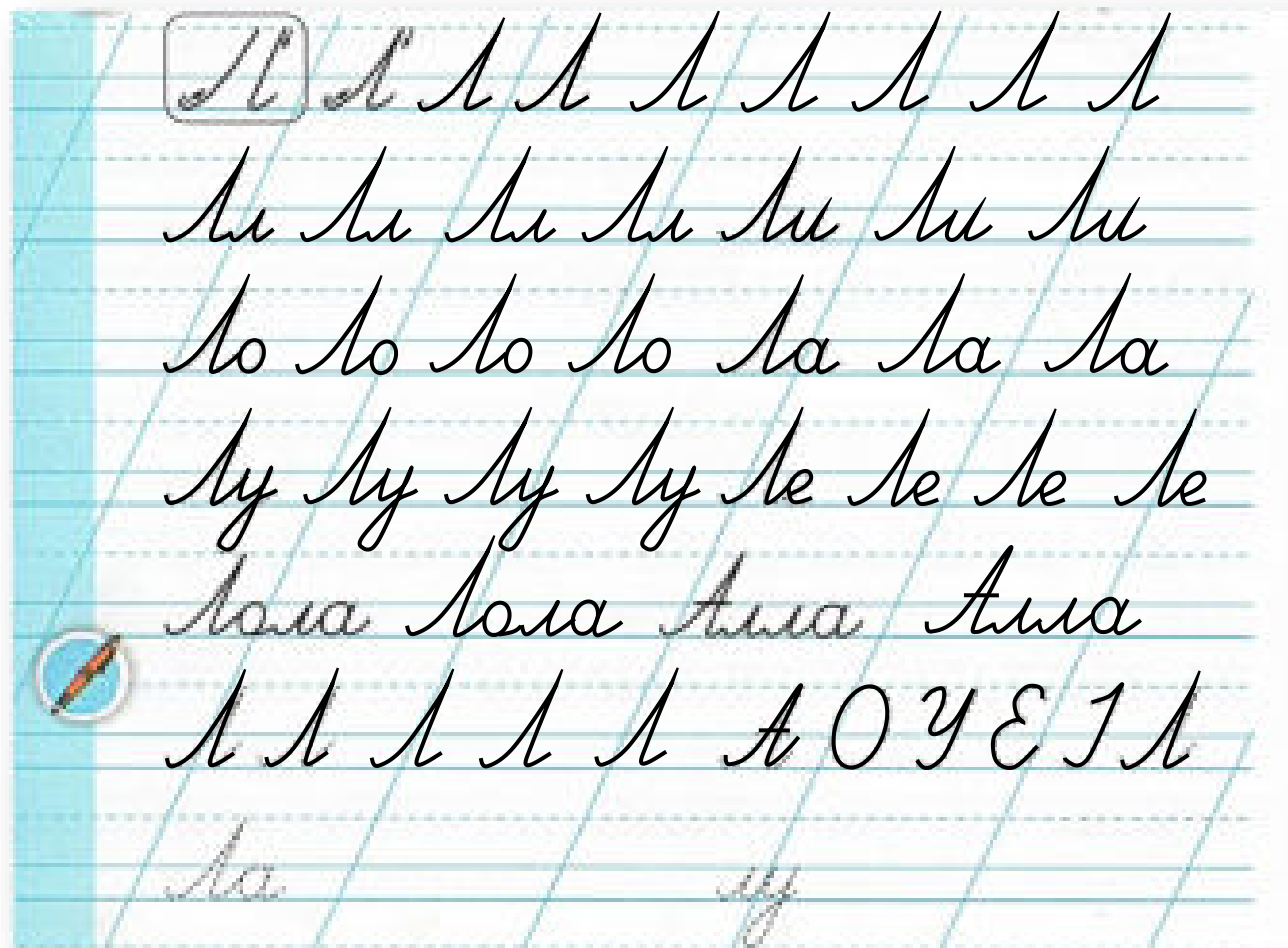 Л Л Л Л Л Л Л Л Л
Лл Лл Лл Лл Ли Ли Ли
Ло Ло Ло Ло Ла Ла Ла
Лу Лу Лу Лу Ле Ле Ле Ле
Лола Лола Алла Алла
Л Л Л Л Л А О У Е І Л
Ла лу